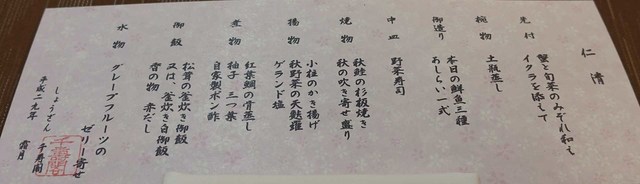 仁清
先付
蟹と旬菜のみぞれ和え
イクラを添えて
椀物
土瓶蒸し
御造り
本日の鮮魚三種
あしらい一式
中皿
野菜寿司
焼物
秋鮭の杉板焼き
秋の吹き寄せ盛り
揚物
小柱のかき揚げ
秋野菜の天麩羅
ゲランド塩
煮物
紅葉鯛の骨蒸し
柚子 三つ葉
自家製ポン酢
御飯
松茸の釜炊き御飯
又は、釜炊き白御飯
香の物 赤だし
水物
グレープフルーツの
ゼリー寄せ
平成二九年 霜月
しょうざん 千寿閣